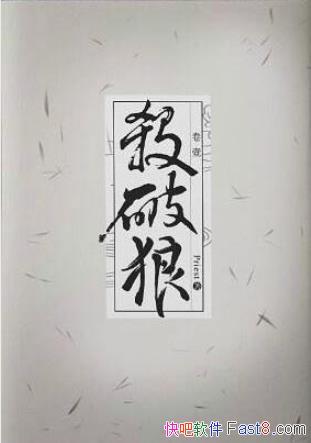 殺破狼
卷壹
Priest 著
快吧软件 Fast8.com